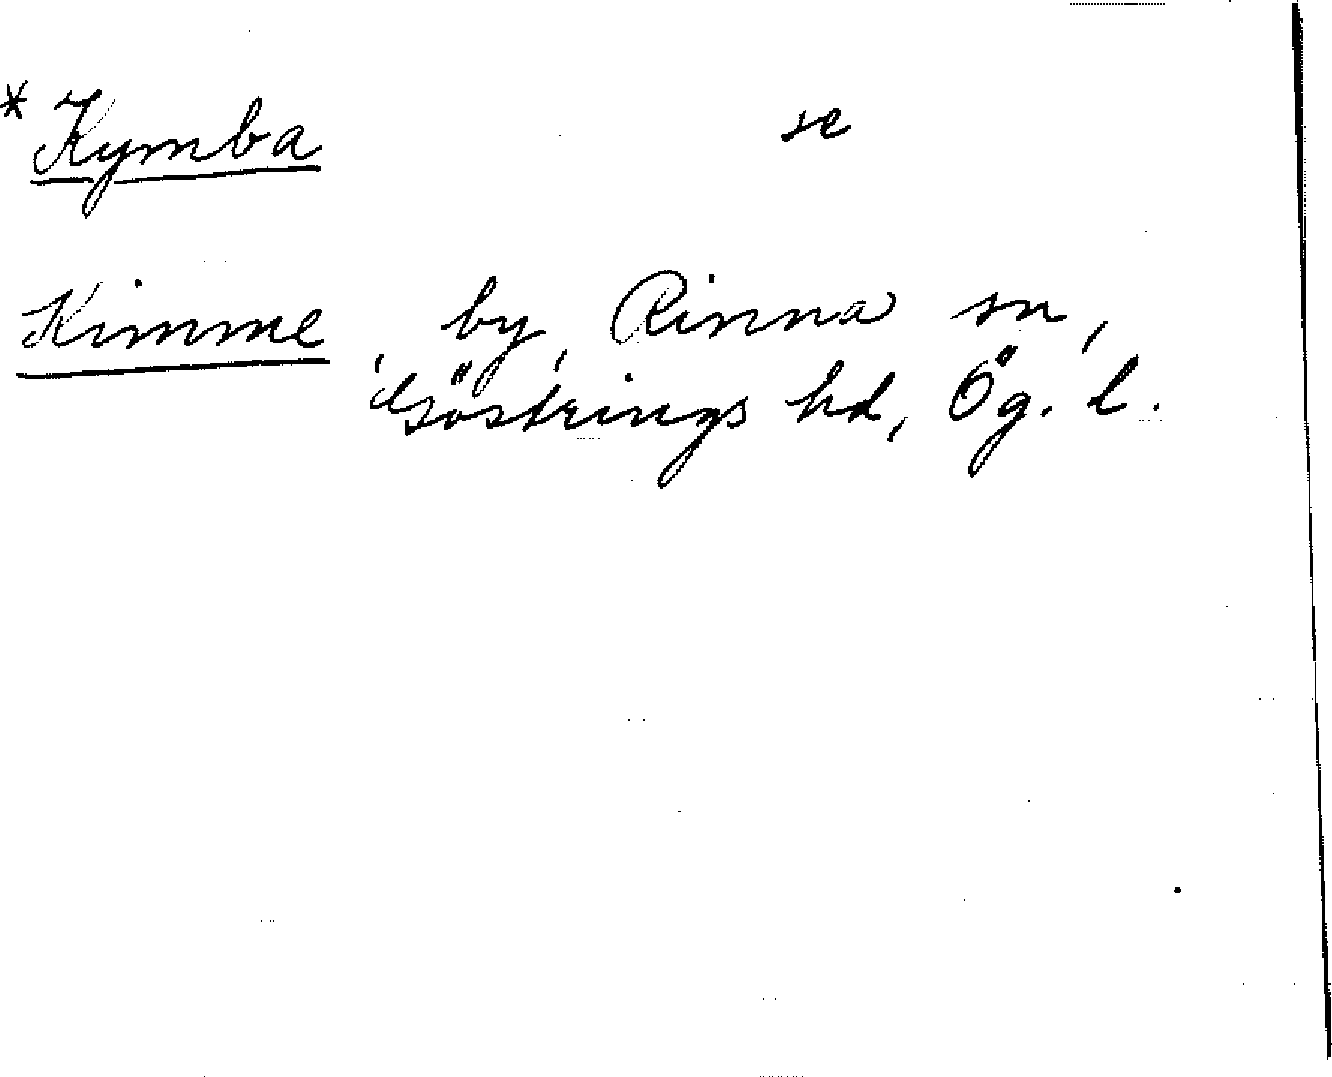 * Kymba se
Kimme, by, Rinna sn,
Göstrings hd, Ög. l.